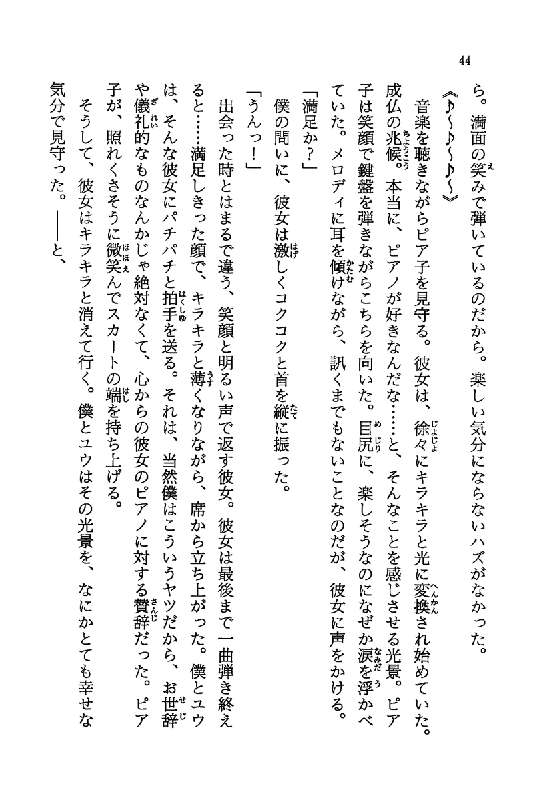 44
ら。満面の笑みで弾いているのだから。楽しい気分にならないハズがなかった。
《♪〜♪〜♪〜》
　音楽を聴きながらピア子を見守る。彼女は、徐々にキラキラと光に変換され始めていた。
成仏の兆候。本当に、ピアノが好きなんだな……と、そんなことを感じさせる光景。ピア
子は笑顔で鍵盤を弾きながらこちらを向いた。目尻に、楽しそうなのになぜか涙を浮かべ
ていた。メロディに耳を傾けながら、訊くまでもないことなのだが、彼女に声をかける。
「満足か？」
　僕の問いに、彼女は激しくコクコクと首を縦に振った。
「うんっ！」
　出会った時とはまるで違う、笑顔と明るい声で返す彼女。彼女は最後まで一曲弾き終え
ると……満足しきった顔で、キラキラと薄くなりながら、席から立ち上がった。僕とユウ
は、そんな彼女にパチパチと拍手を送る。それは、当然僕はこういうヤツだから、お世辞
や儀礼的なものなんかじゃ絶対なくて、心からの彼女のピアノに対する賛辞だった。ピア
子が、照れくさそうに微笑んでスカートの端を持ち上げる。
　そうして、彼女はキラキラと消えて行く。僕とユウはその光景を、なにかとても幸せな
気分で見守った。――と、